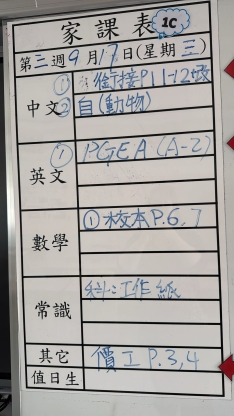 家課表 1C
第三週9月17日(星期三)
中文 ① 銜接P11-12改
② 自(動物)
英文 ① PGEA (A-Z)
數學 ① 校本P.6,7
常識 工作紙
其它 價工P.3,4
值日生